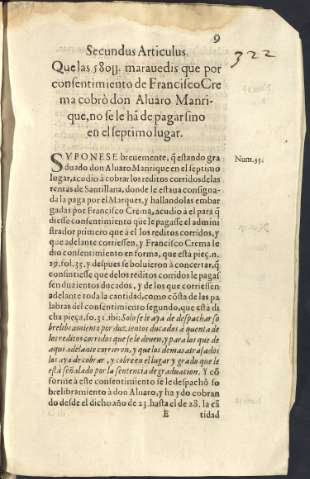 9
322
Secundus Articulus.
Que las 580U. marauedis que por
consentimiento de Francisco Cre
ma cobrò don Aluaro Manri-
que, no se le hã de pagar sino
en el septimo lugar.
SVPONESE breuemente, q̃ estando gra
duado don Aluaro Manrique en el septimo
lugar, acudiò a cobrar los reditos corridos de las
rentas de Santillana, donde le estaua consigna-
da la paga por el Marques, y hallandolas embar
gadas por Francisco Crema, acudio a èl para q̃
diesse consentimiento que le pagasse el admini-
strador primero que a èl los reditos corridos, y
que adelante corriessen, y Francisco Crema le
dio consentimiento en forma, que està pieç. n.
19. fol. 35. y despues se boluieron à concertar, q̃
consintiesse que de los reditos corridos le pagas-
sen duzientos ducados, y de los que corriessen
adelante toda la cantidad, como cõsta de las pa
labras del consentimiento segundo, que està di
cha pieça, fo. 51. ibi: Solo se le aya de despachar so
brelibramiento por duzientos ducados à quenta de
los reditos corridos que se le deuen, y para los que de
aqui adelante corrieren, y que los demas atrasados
los aya de cobrar, y cobre en el lugar y grado que le
està señalado por la sentencia de graduacion. Y cõ
forme à este consentimiento se le despachò so
brelibramiento à don Aluaro, y ha ydo cobran
do desde el dicho año de 23. hasta el de 28. la cã
E tidad
Num. 55.